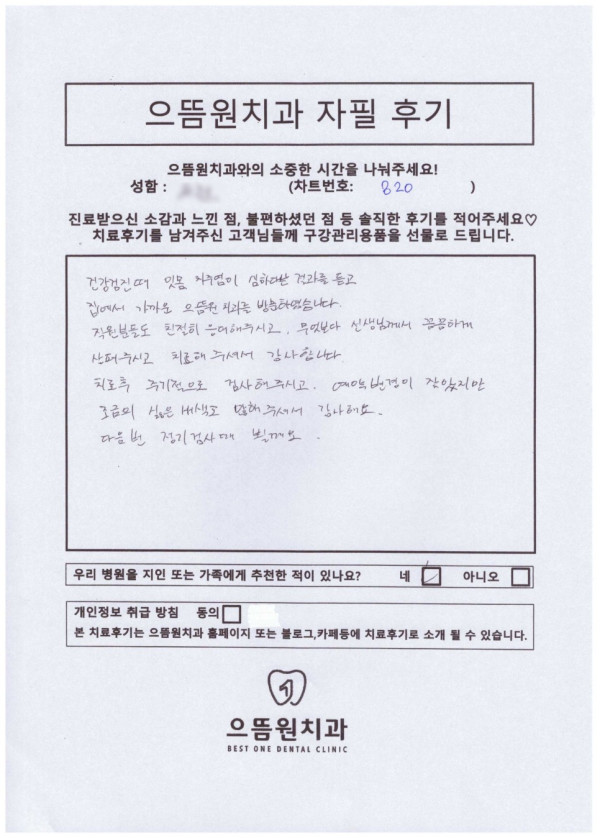 으뜸원치과 자필 후기
으뜸원치과와의 소중한 시간을 나눠주세요!
성함 : (차트번호: 820 )
진료받으신 소감과 느낀 점, 불편하셨던 점 등 솔직한 후기를 적어주세요♡
치료후기를 남겨주신 고객님들께 구강관리용품을 선물로 드립니다.
건강검진때 잇몸 치주염이 심하다는 결과를 듣고
집에서 가까운 으뜸원 치과를 방문하였습니다.
직원분들도 친절히 응대해주시고, 무엇보다 선생님께서 꼼꼼하게
살펴주시고 치료해 주셔서 감사합니다
치료후 주기적으로 검사해주시고. 예약변경이 잦았지만
조금의 싫은 내색도 안해주셔서 감사해요.
다음번 정기검사때 뵐께요.
우리 병원을 지인 또는 가족에게 추천한 적이 있나요? 네 아니오
개인정보 취급 방침 동의
본 치료후기는 으뜸원치과 홈페이지 또는 블로그,카페등에 치료후기로 소개 될 수 있습니다.
으뜸원치과
BEST ONE DENTAL CLINIC